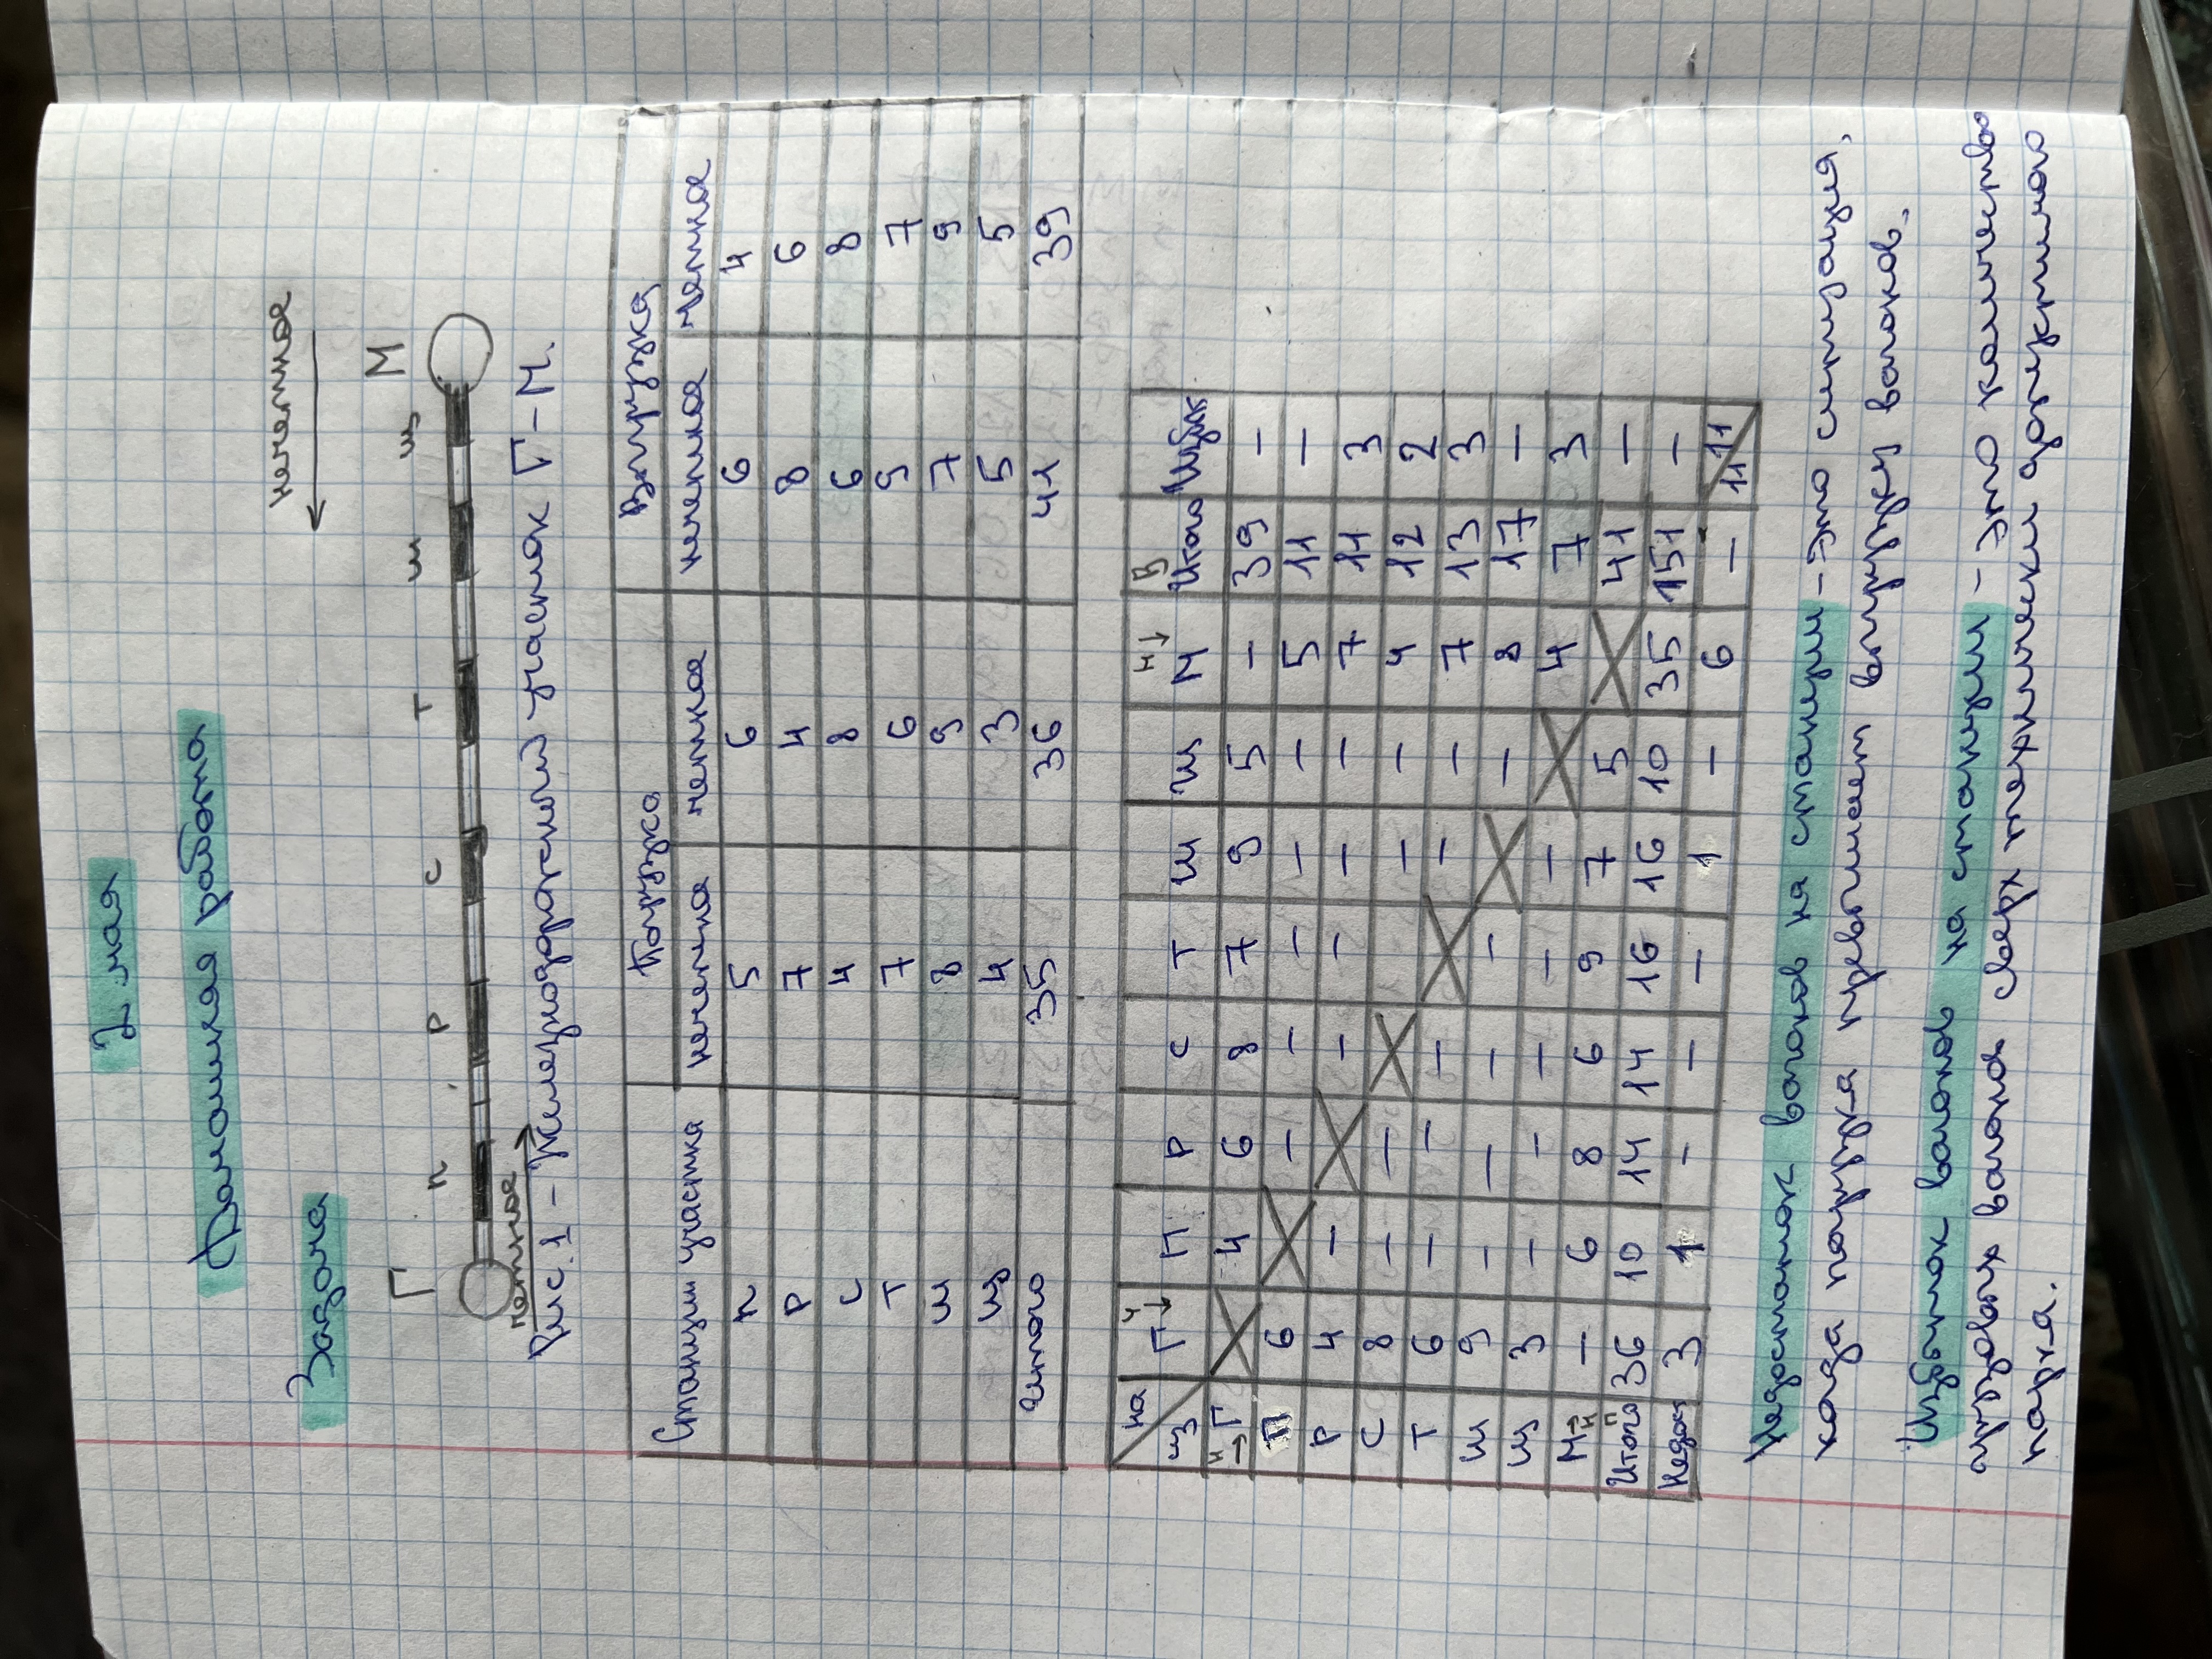 2 мая
Домашняя работа
Задача
нечетное
Г п р с т ш щ М
четное
Рис. 1 - Железнодорожный участок Г-М.
Станции участка Погрузка Выгрузка
нечетная четная нечетная четная
п 5 6 6 4
р 7 4 8 6
с 4 8 6 8
т 7 6 9 7
ш 8 9 7 9
щ 4 3 5 5
итого 35 36 41 39
из на Г ч П Р С Т Ш Щ М н Итого В Избыток
н Г 4 6 8 7 9 5 - 39 -
П 6 - - - - - 5 11 -
Р 4 - - - - - 7 11 3
С 8 - - - - 4 12 2
Т 6 - - - - - 7 13 3
Ш 9 - - - - - 8 17 -
Щ 3 - - - - - 4 7 3
М н - 6 8 6 9 7 5 41 -
Итого п 36 10 14 14 16 16 10 35 151 -
Недост 3 1 - - - 1 - 6 - 11 11
Недостаток вагонов на станции - это ситуация,
когда погрузка превышает выгрузку вагонов.
Избыток вагонов на станции - это количество
грузовых вагонов сверх технически допустимого
парка.